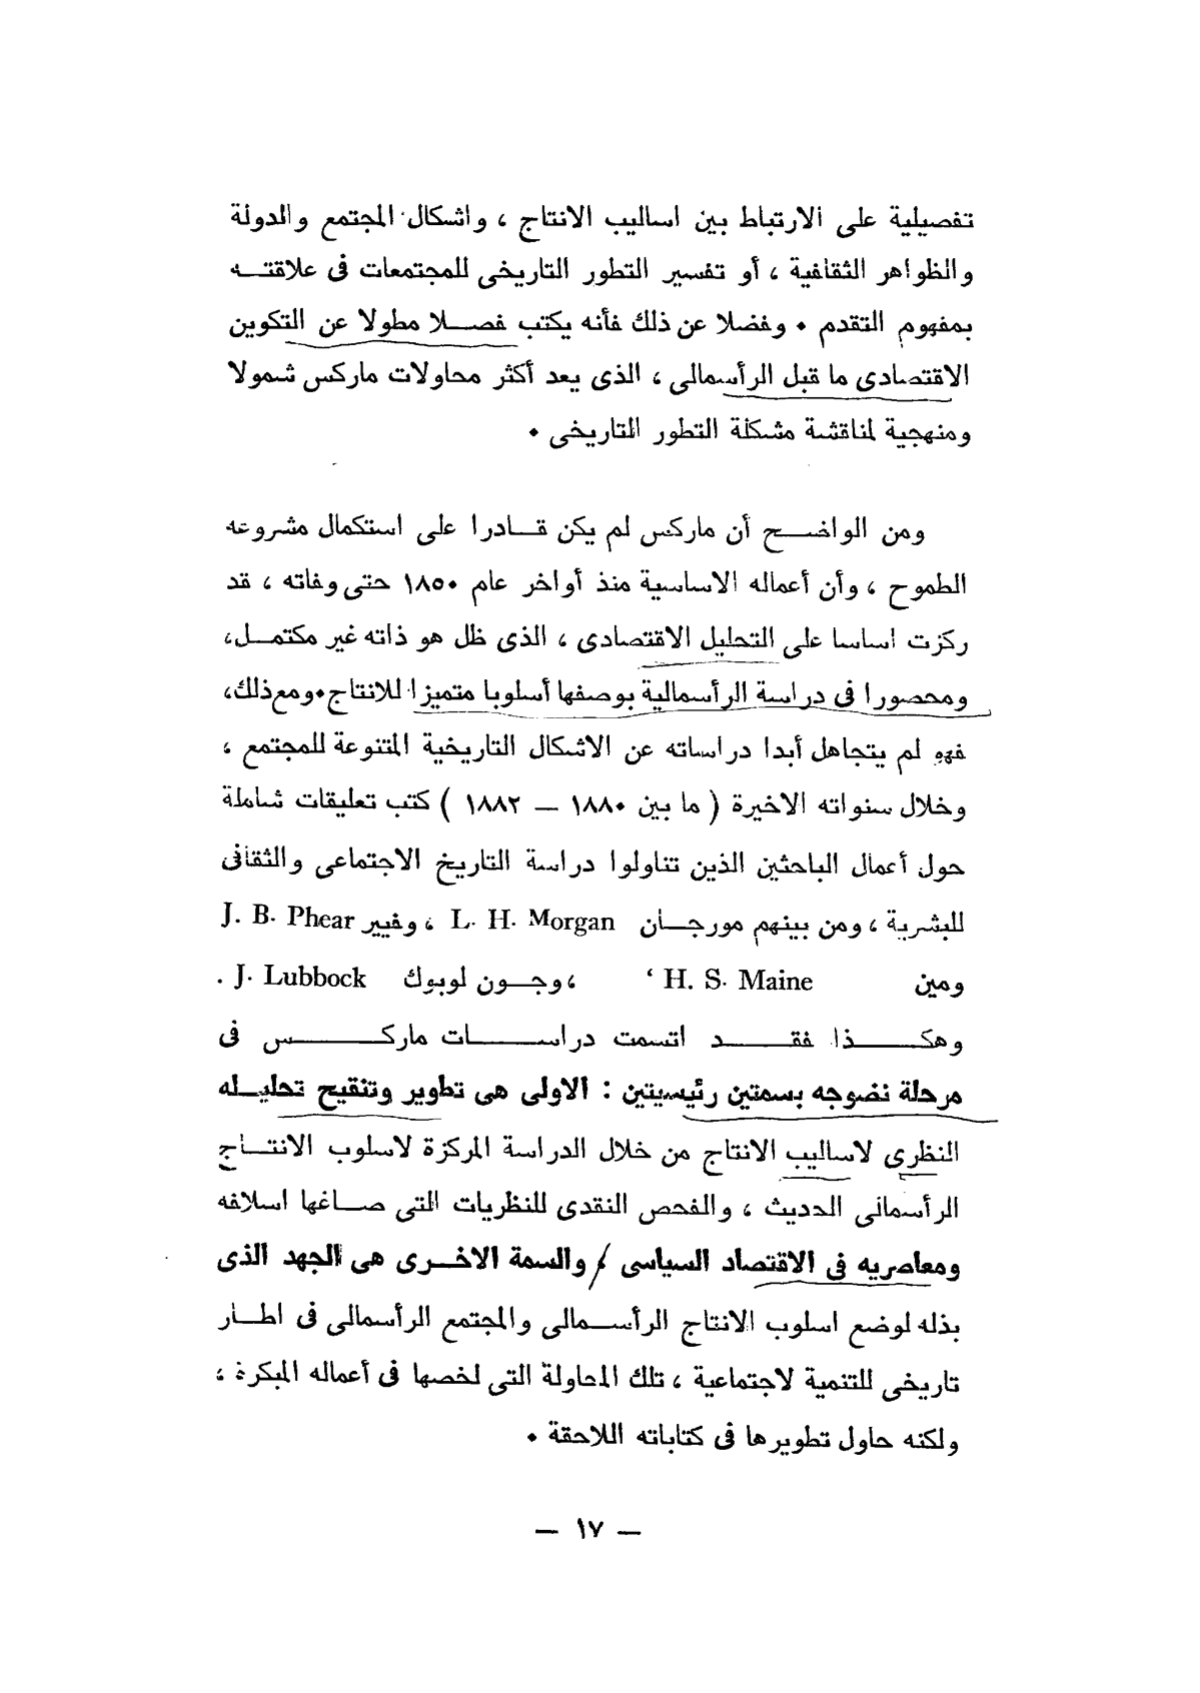 تفصيلية على الارتباط بين اساليب الانتاج ، واشكال المجتمع والدولة
والظواهر الثقافية ، أو تفسير التطور التاريخى للمجتمعات فى علاقتـــه
بمفهوم التقدم • وفضلا عن ذلك فأنه يكتب فصـــلا مطولا عن التكوين
الاقتصادى ما قبل الرأسمالى ، الذى يعد أكثر محاولات ماركس شمولا
ومنهجية لمناقشة مشكلة التطور التاريخى •
ومن الواضـــح أن ماركس لم يكن قـــادرا على استكمال مشروعه
الطموح ، وأن أعماله الاساسية منذ أواخر عام ١٨٥٠ حتى وفاته ، قد
ركزت اساسا على التحليل الاقتصادى ، الذى ظل هو ذاته غير مكتمـــل،
ومحصورا فى دراسة الرأسمالية بوصفها أسلوبا متميزا للانتاج•ومع ذلك،
فهو لم يتجاهل أبدا دراساته عن الاشكال التاريخية المتنوعة للمجتمع ،
وخلال سنواته الاخيرة ( ما بين ١٨٨٠ — ١٨٨٢ ) كتب تعليقات شاملة
حول أعمال الباحثين الذين تناولوا دراسة التاريخ الاجتماعى والثقافى
للبشرية ، ومن بينهم مورجـــان L. H. Morgan ، وفيير J. B. Phear
ومين H. S. Maine ‘ ، وجـــون لوبوك J. Lubbock .
وهكـــــذا فقـــــد اتسمت دراســـــات ماركـــــس فى
مرحلة نضوجه بسمتين رئيسيتين : الاولى هى تطوير وتنقيح تحليـــله
النظرى لاساليب الانتاج من خلال الدراسة المركزة لاسلوب الانتـــاج
الرأسمالى الحديث ، والفحص النقدى للنظريات التى صـــاغها اسلافه
ومعاصريه فى الاقتصاد السياسى ، والسمة الاخـــرى هى الجهد الذى
بذله لوضع اسلوب الانتاج الرأســـمالى والمجتمع الرأسمالى فى اطـــار
تاريخى للتنمية لاجتماعية ، تلك المحاولة التى لخصها فى أعماله المبكرة ،
ولكنه حاول تطويرها فى كتاباته اللاحقة •
— ١٧ —